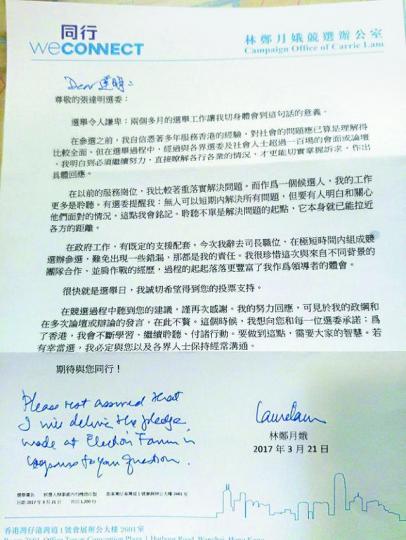 同行
WECONNECT
林鄭月娥競選辦公室
Campaign Office of Carrie Lam
Dear 達明:
尊敬的張達明選委：
選舉令人謙卑：兩個多月的選舉工作讓我切身體會到這句話的意義。
在參選之前，我自信憑著多年服務香港的經驗，對社會的問題應已算是理解得
比較全面。但在選舉過程中，經過與各界選委及社會人士超過一百場的會面或論壇
，我明白到必須繼續努力，直接瞭解各行各業的情況，才更能切實掌握訴求，作出
具體回應。
在以前的服務崗位，我比較著重落實解決問題。而作爲一個候選人，我的工作
更多是聆聽。有選委提醒我：無人可以短期內解決所有問題，但要有人明白和關心
他們面對的情況，這點我會銘記。聆聽不單是解決問題的起點，它本身就已能拉近
各方的距離。
在政府工作，有既定的支援配套。今次我辭去司長職位，在極短時間內組成競
選辦參選，難免出現一些錯漏，那都是我的責任。我很珍惜這次與來自不同背景的
團隊合作，並肩作戰的經歷，過程的起起落落更豐富了我作爲領導者的體會。
很快就是選舉日，我誠切希望得到您的投票支持。
在競選過程中聽到您的建議，謹再次感謝。我的努力回應，可見於我的政綱和
在多次論壇或辯論的發言，在此不贅。這個時候，我想向您和每一位選委承諾：爲
了香港，我會不斷學習、繼續聆聽、付諸行動。要做到這點，需要大家的智慧。若
有幸當選，我必定與您以及各界人士保持經常溝通。
期待與您同行！
Please rest assured that
I will deliver the pledge
made at Election Forum in
response to your question.
林鄭月娥
2017 年 3 月 21 日
香港灣仔港灣道1號會展辦公大樓2601室